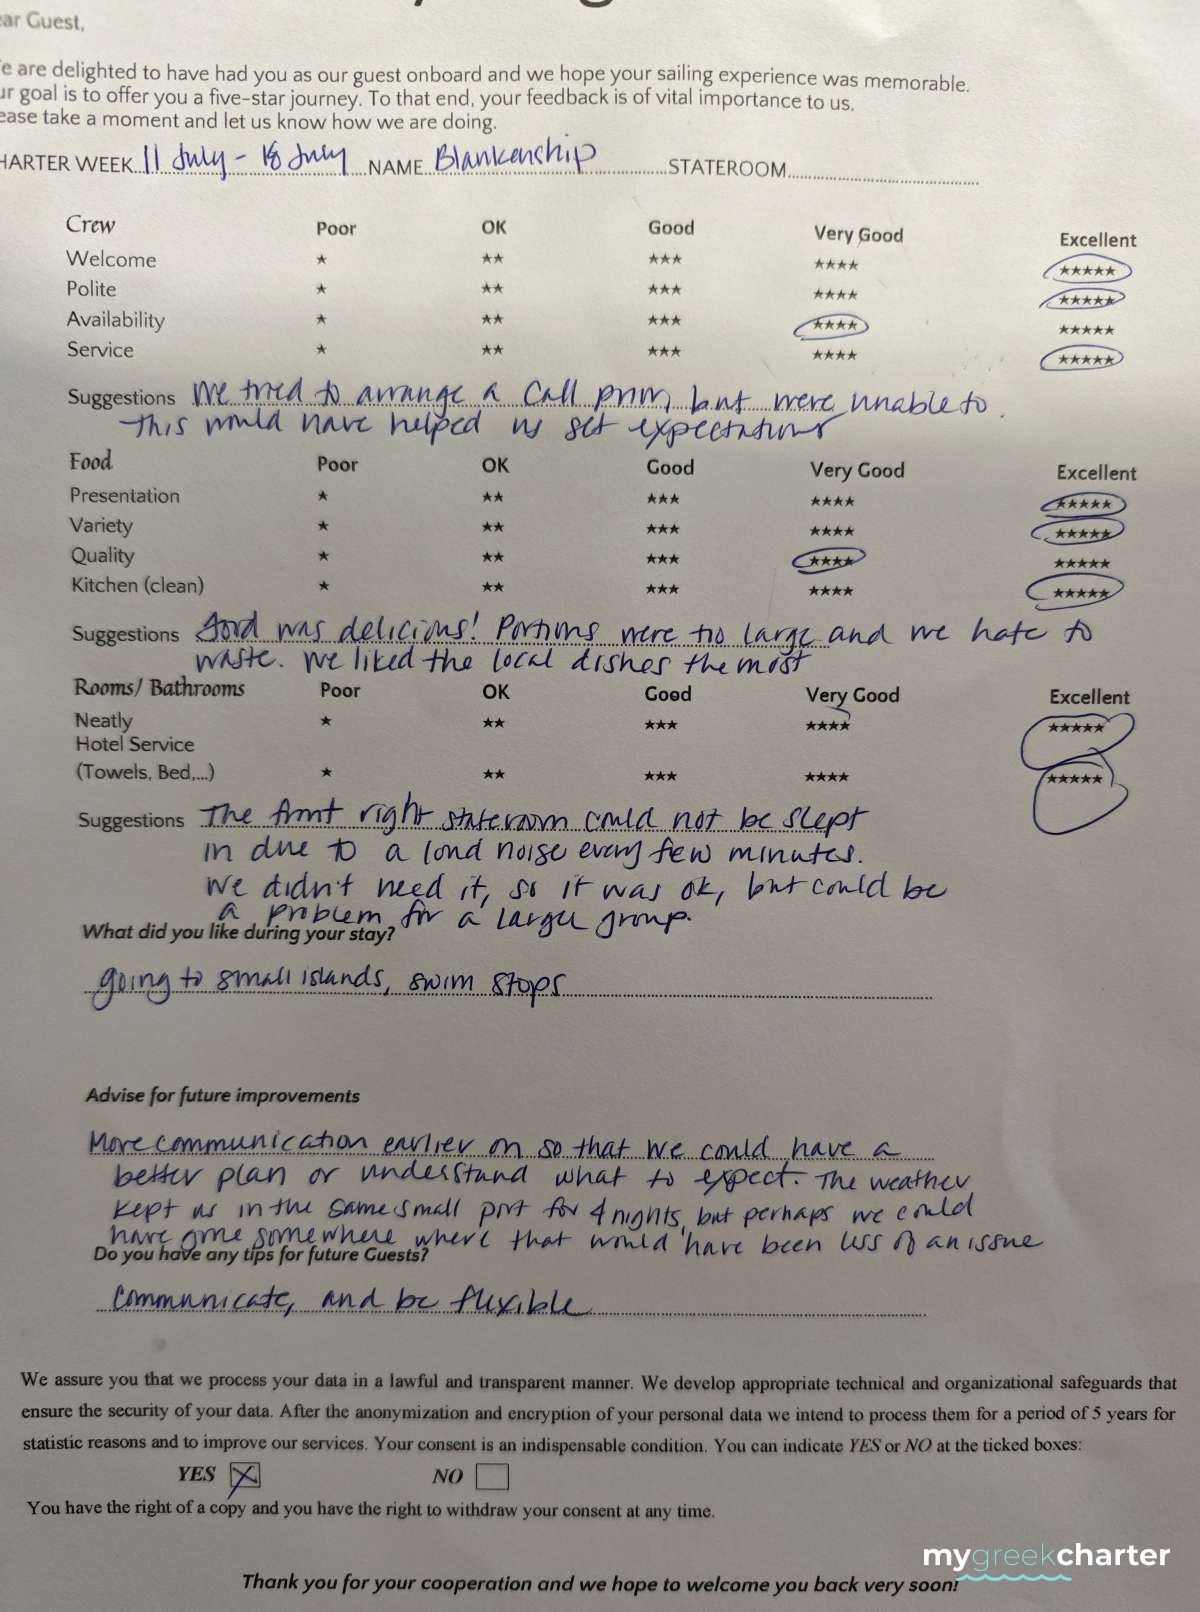 ar Guest,
e are delighted to have had you as our guest onboard and we hope your sailing experience was memorable.
ur goal is to offer you a five-star journey. To that end, your feedback is of vital importance to us.
ease take a moment and let us know how we are doing.
HARTER WEEK 11 July - 18 July NAME Blankenship STATEROOM
Crew Poor OK Good Very Good Excellent
Welcome ★ ★★ ★★★ ★★★★ ★★★★★
Polite ★ ★★ ★★★ ★★★★ ★★★★★
Availability ★ ★★ ★★★ ★★★★ ★★★★★
Service ★ ★★ ★★★ ★★★★ ★★★★★
Suggestions We tried to arrange a call prior, but were unable to.
This would have helped us set expectations
Food Poor OK Good Very Good Excellent
Presentation ★ ★★ ★★★ ★★★★ ★★★★★
Variety ★ ★★ ★★★ ★★★★ ★★★★★
Quality ★ ★★ ★★★ ★★★★ ★★★★★
Kitchen (clean) ★ ★★ ★★★ ★★★★ ★★★★★
Suggestions Food was delicious! Portions were too large and we hate to
waste. We liked the local dishes the most
Rooms/ Bathrooms Poor OK Good Very Good Excellent
Neatly ★ ★★ ★★★ ★★★★ ★★★★★
Hotel Service
(Towels, Bed,...) ★ ★★ ★★★ ★★★★ ★★★★★
Suggestions The front right stateroom could not be slept
in due to a loud noise every few minutes.
We didn't need it, so it was ok, but could be
a problem for a larger group.
What did you like during your stay?
going to small islands, swim stops
Advise for future improvements
More communication earlier on so that we could have a
better plan or understand what to expect. The weather
kept us in the same small port for 4 nights, but perhaps we could
have gone somewhere where that would have been less of an issue
Do you have any tips for future Guests?
Communicate, and be flexible
We assure you that we process your data in a lawful and transparent manner. We develop appropriate technical and organizational safeguards that
ensure the security of your data. After the anonymization and encryption of your personal data we intend to process them for a period of 5 years for
statistic reasons and to improve our services. Your consent is an indispensable condition. You can indicate YES or NO at the ticked boxes:
YES X NO
You have the right of a copy and you have the right to withdraw your consent at any time.
mygreekcharter
Thank you for your cooperation and we hope to welcome you back very soon!